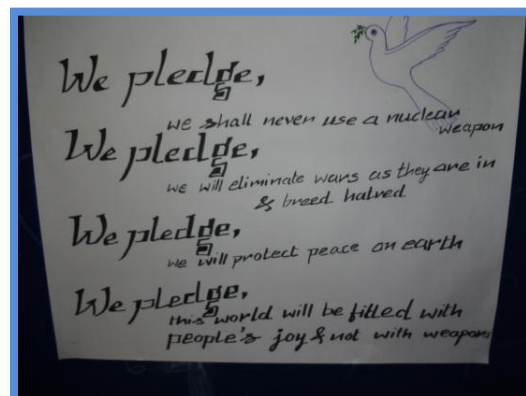 We pledge,
we shall never use a nuclear
weapon
We pledge,
we will eliminate wars as they are in
& breed hatred
We pledge,
we will protect peace on earth
We pledge,
this world will be filled with
people's joy & not with weapons